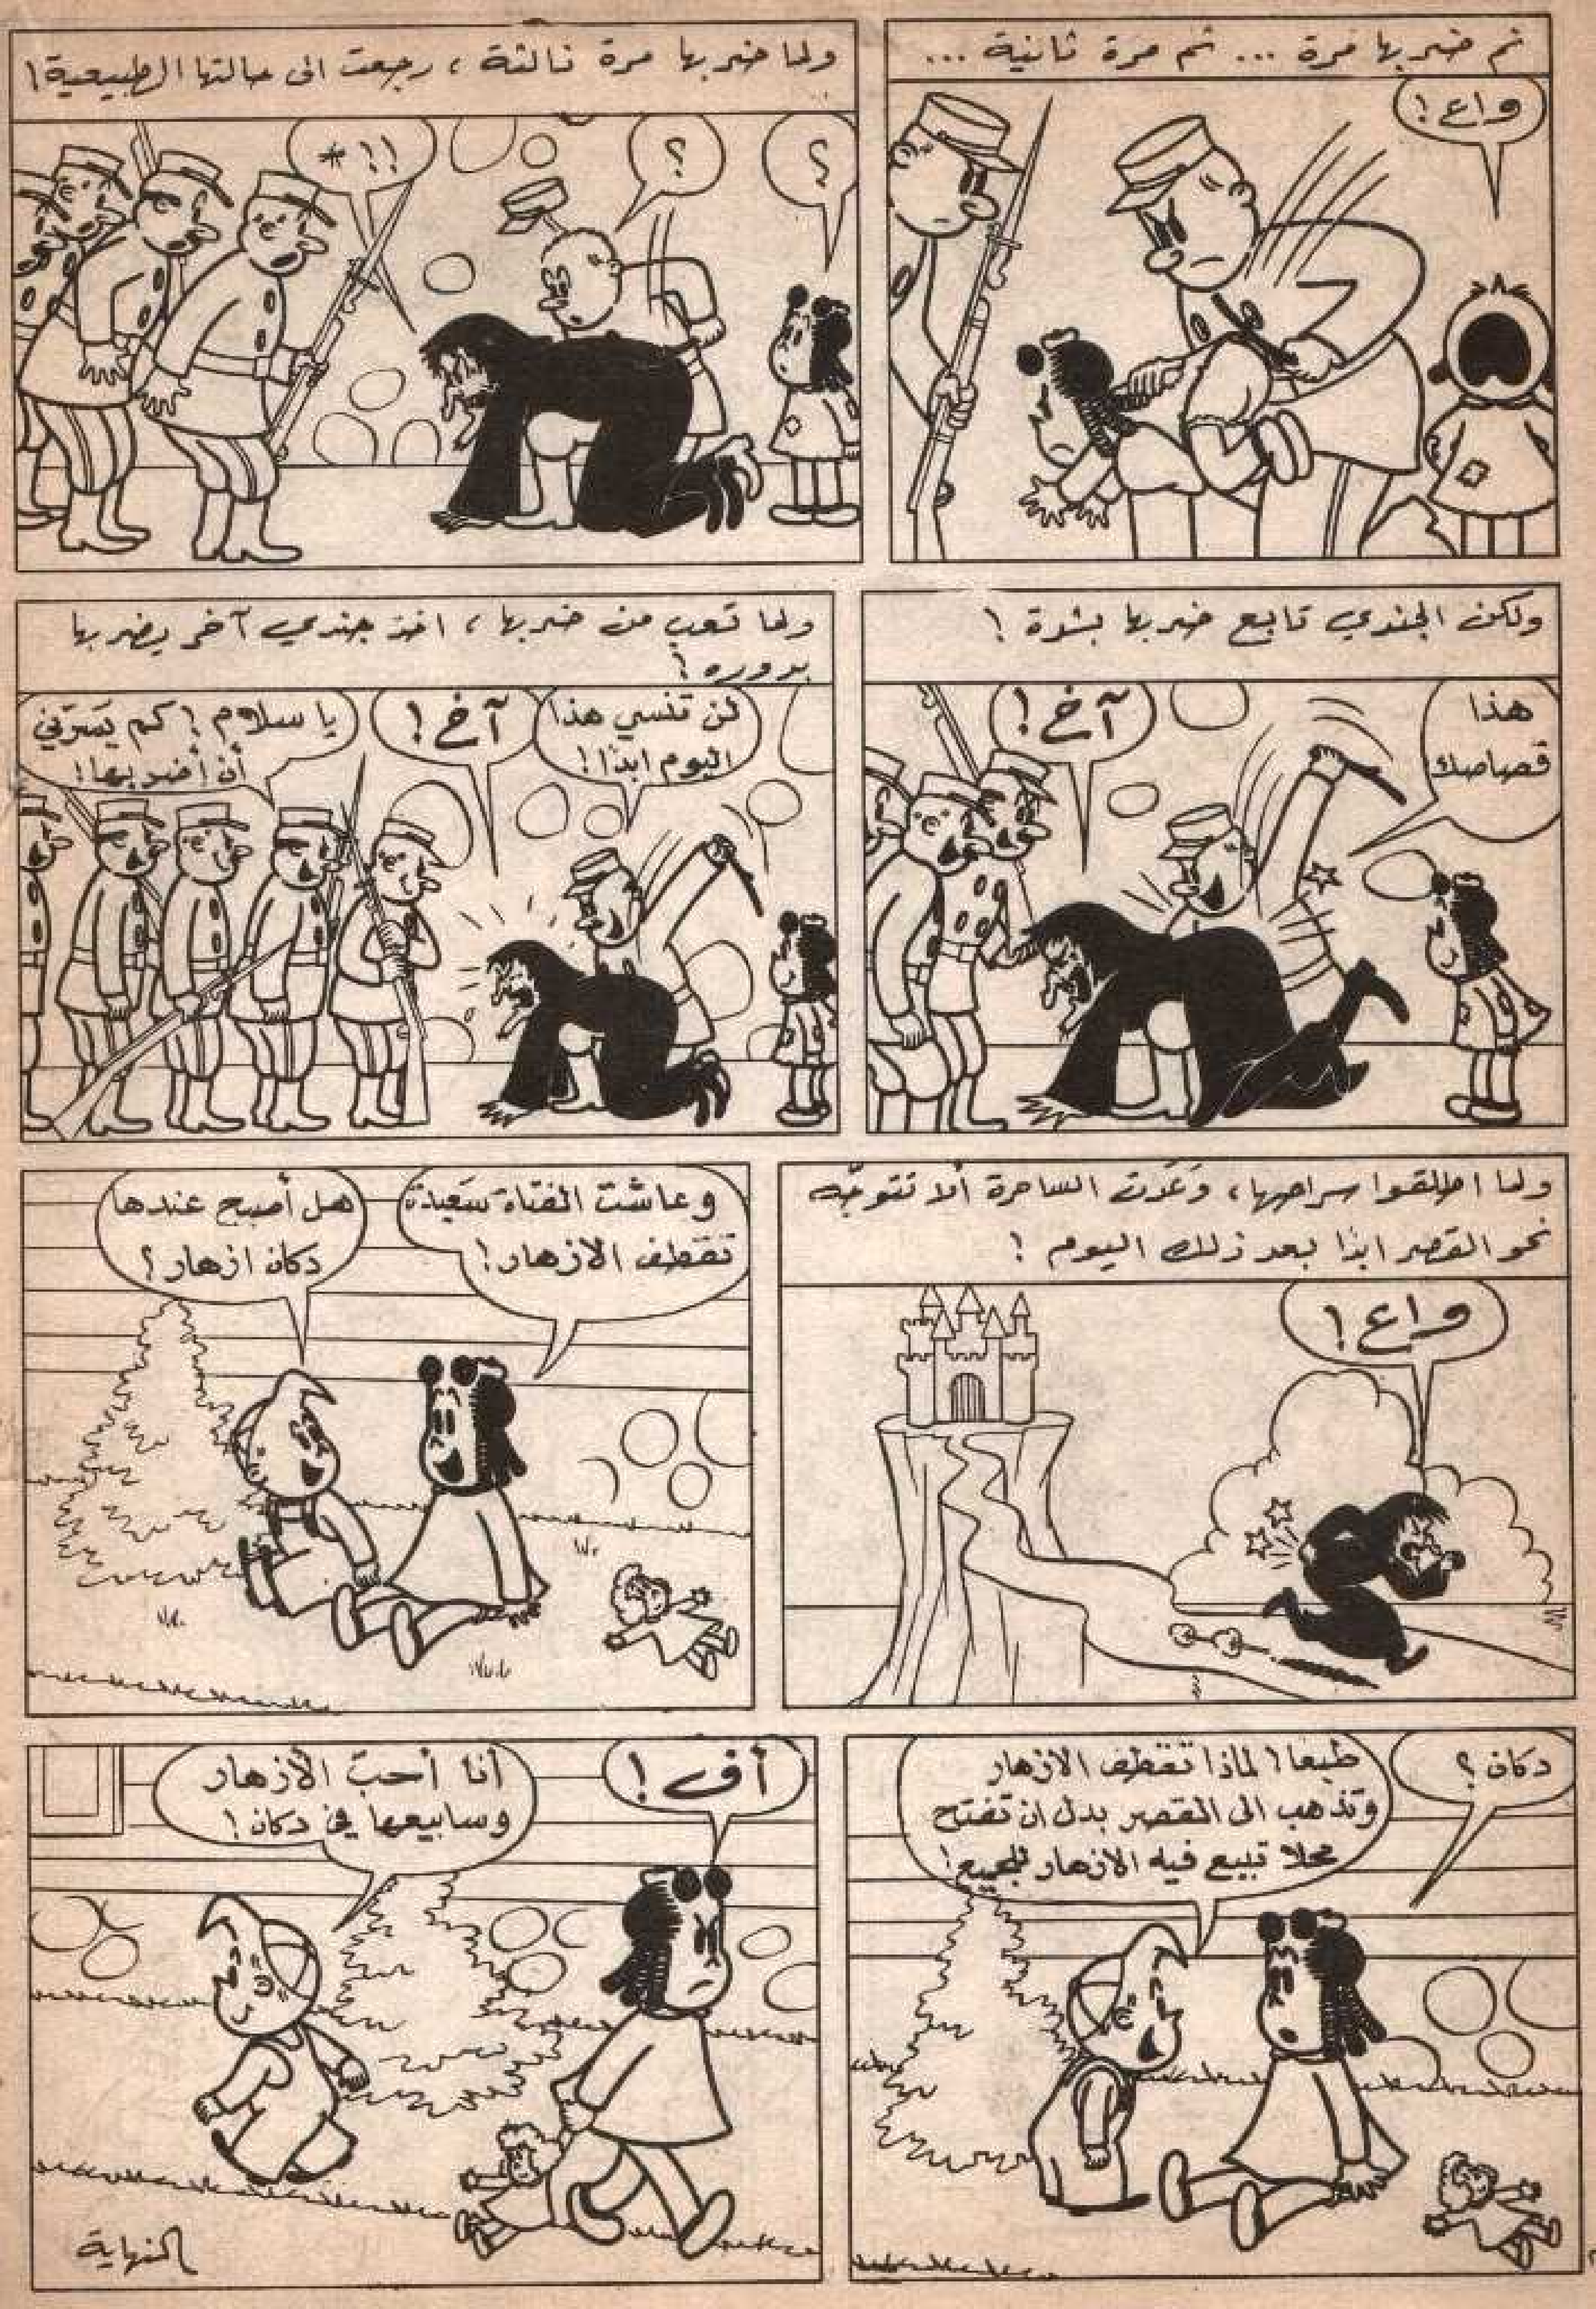 ثم ضربها مرة ... ثم مرة ثانية ...
واع!
ولما ضربها مرة ثالثة، رجعت الى حالتها الطبيعية!
؟
؟
!! *
ولكن الجندي تابع ضربها بشدة !
هذا
قصاصك
آخ !
ولما تعب من ضربها، اخذ جندي آخر يضربها
بدوره !
لن تنسي هذا
اليوم ابدًا!
آخ !
يا سلام ! كم يَسَرّني
أن أضربها!
ولما اطلقوا سراحها، وَعَدَت الساحرة ألا تتوجّه
نحو القصر ابدًا بعد ذلك اليوم !
واع !
وعاشت الفتاة سَعيدة
تقطف الازهار!
هل أصبح عندها
دكان ازهار؟
دكان ؟
طبعا! لماذا تقطف الازهار
وتذهب الى القصر بدل ان تفتح
محلا تبيع فيه الازهار للجميع!
أف !
أنا أحبّ الأزهار
وسابيعها في دكان!
النهاية